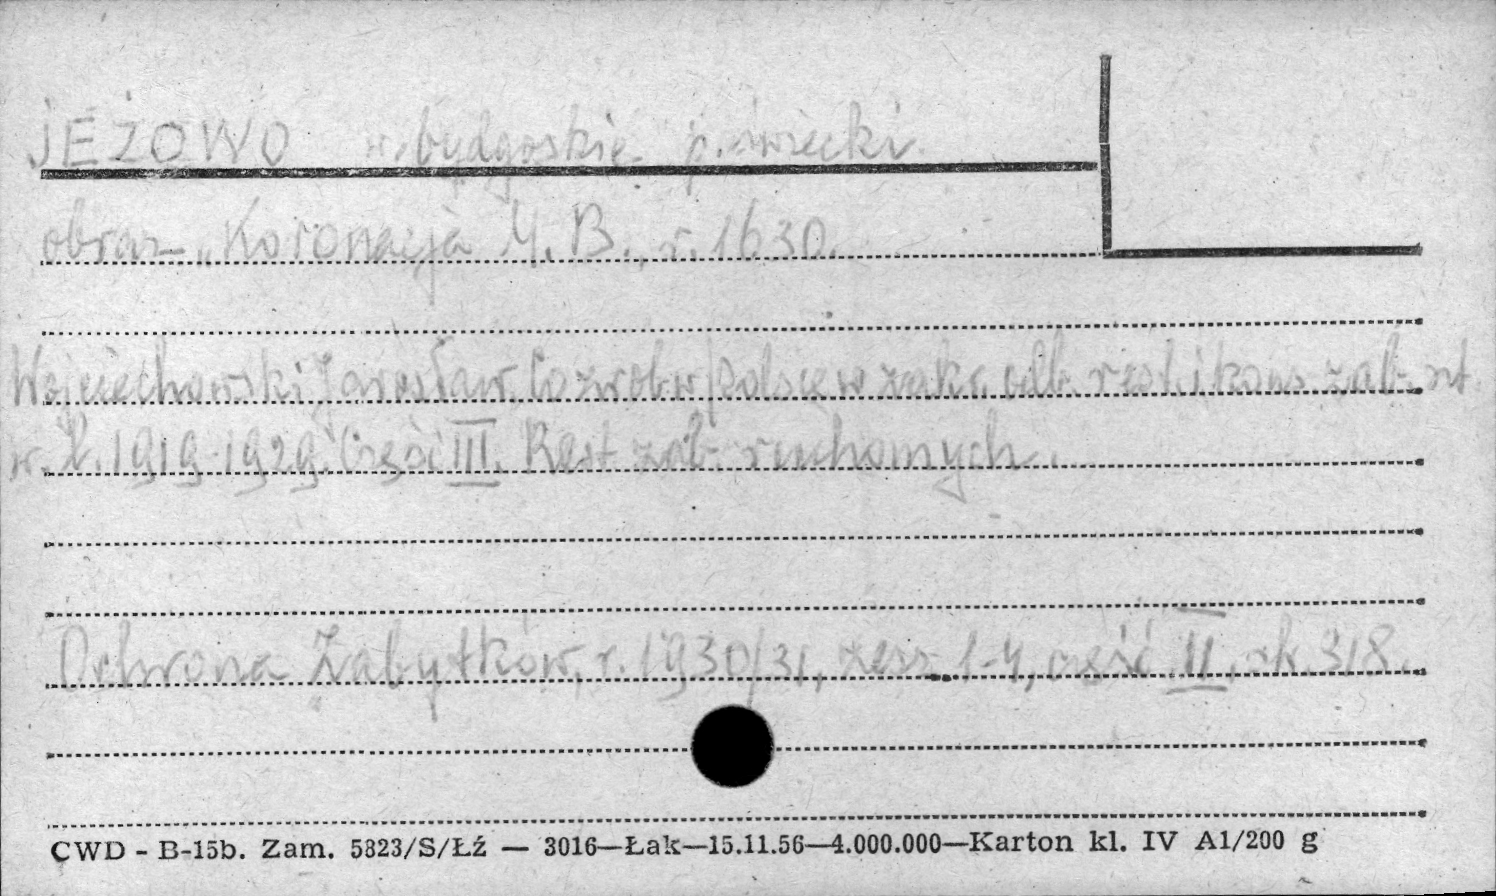 JEŻOWO w. bydgoskie p. świecki
obraz – „Koronacja M. B., r. 1630.
Wojciechowski Jarosław. Co zrob. w Polsce w zakr. odb. rest. i kons. zab. szt.
w l. 1919-1929. Część III. Rest. zab. ruchomych.
Ochrona Zabytków, r. 1930/31, zesz. 1-4, część II, str. 318.
CWD - B-15b. Zam. 5823/S/Łź — 3016—Łak—15.11.56—4.000.000—Karton kl. IV A1/200 g